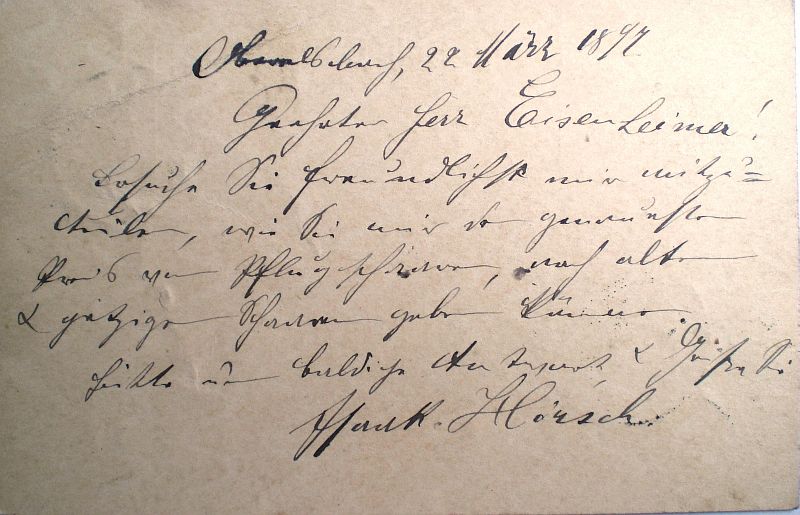 Oberelsbach, 22 März 1897.
Geehrter Herr Eisenheimer!
Ersuche Sie freundlichst mir mitzu=
theilen, wie Sie mir den genauesten
Preis von Pflugschaaren, nach alten
& jetzigen Schaaren geben können.
Bitte um baldige Antwort, & Grüße Sie
Isaak. Hörsch.